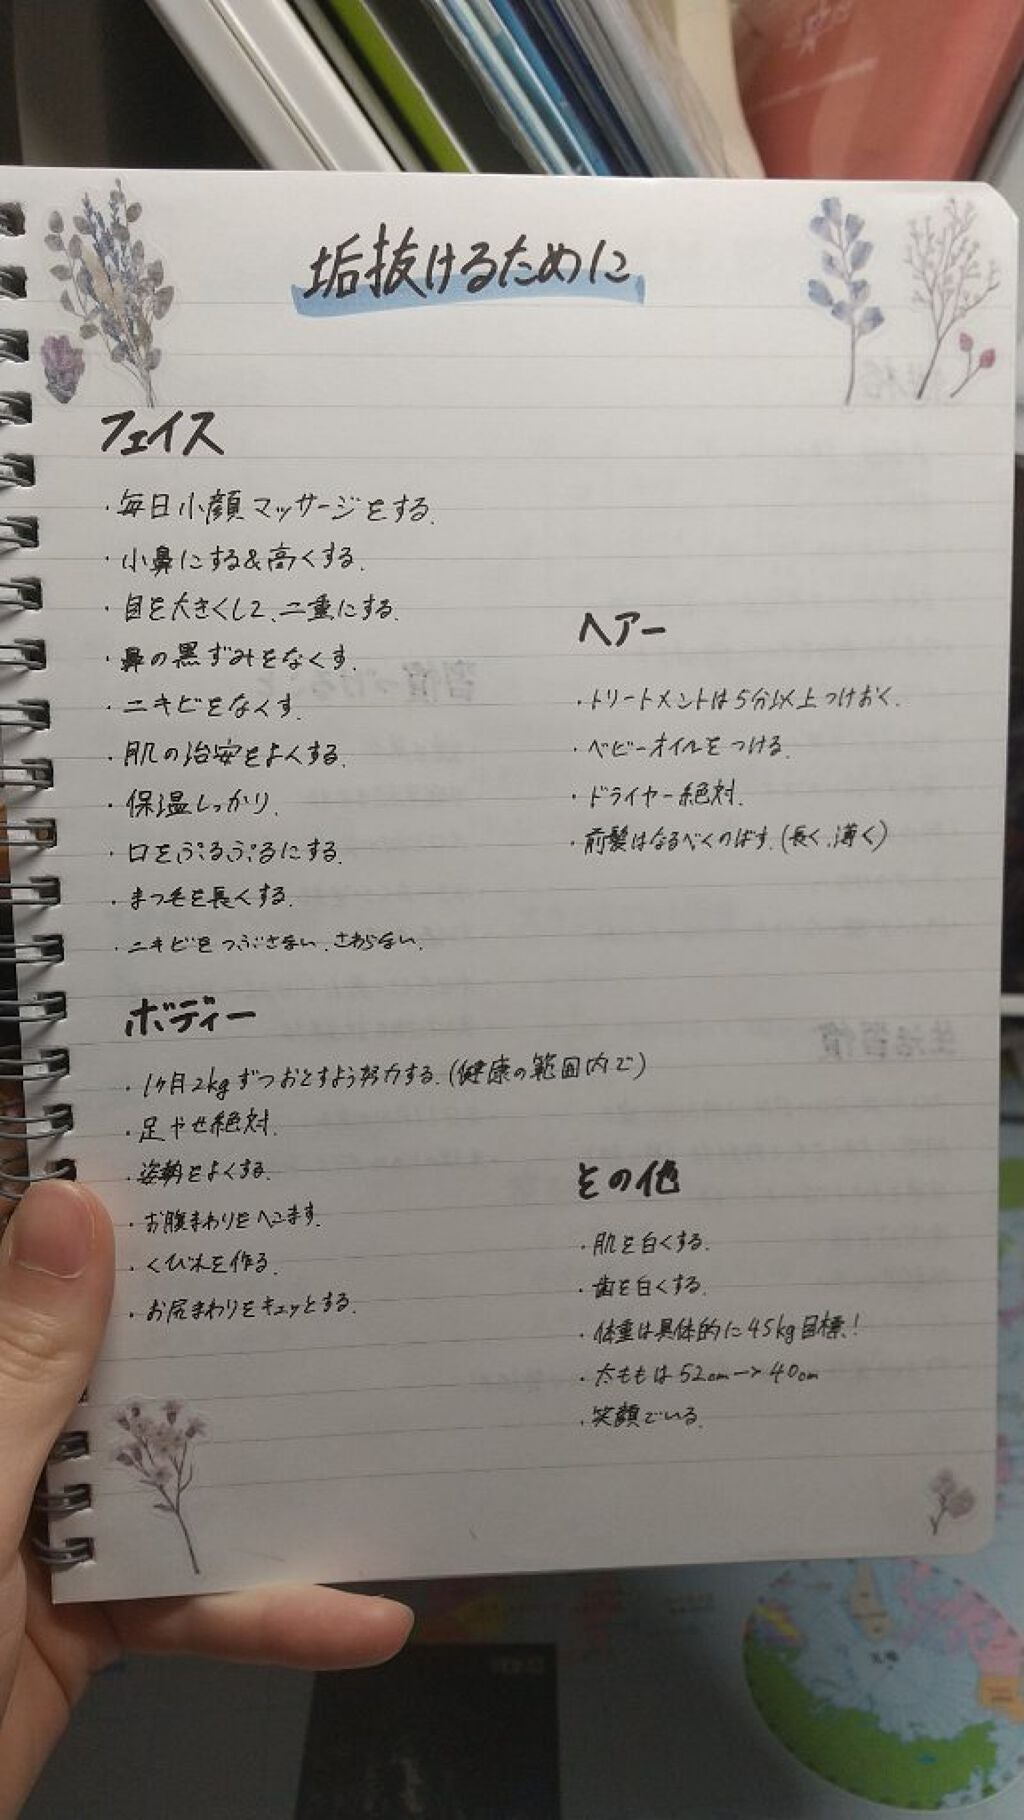 垢抜けるために
フェイス
・毎日小顔マッサージをする.
・小鼻にする&高くする.
・目を大きくして、二重にする.
・鼻の黒ずみをなくす.
・ニキビをなくす.
・肌の治安をよくする.
・保温しっかり.
・口をぷるぷるにする.
・まつ毛を長くする.
・ニキビをつぶさない、さわらない.
ボディー
・1ヶ月2kgずつおとすよう努力する.(健康の範囲内で)
・足やせ絶対.
・姿勢をよくする.
・お腹まわりをへこます.
・くびれを作る.
・お尻まわりをキュッとする.
ヘアー
・トリートメントは5分以上つけおく.
・ベビーオイルをつける.
・ドライヤー絶対.
・前髪はなるべくのばす.(長く、薄く)
その他
・肌を白くする.
・歯を白くする.
・体重は具体的に45kg目標!
・太ももは52cm→40cm
・笑顔でいる.